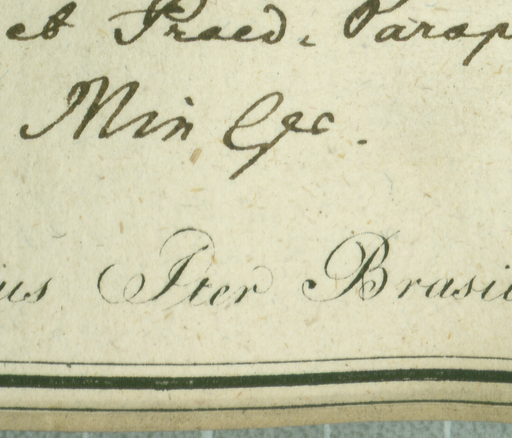 et Praed. Parap
Min Ges.
ius Iter Brasil